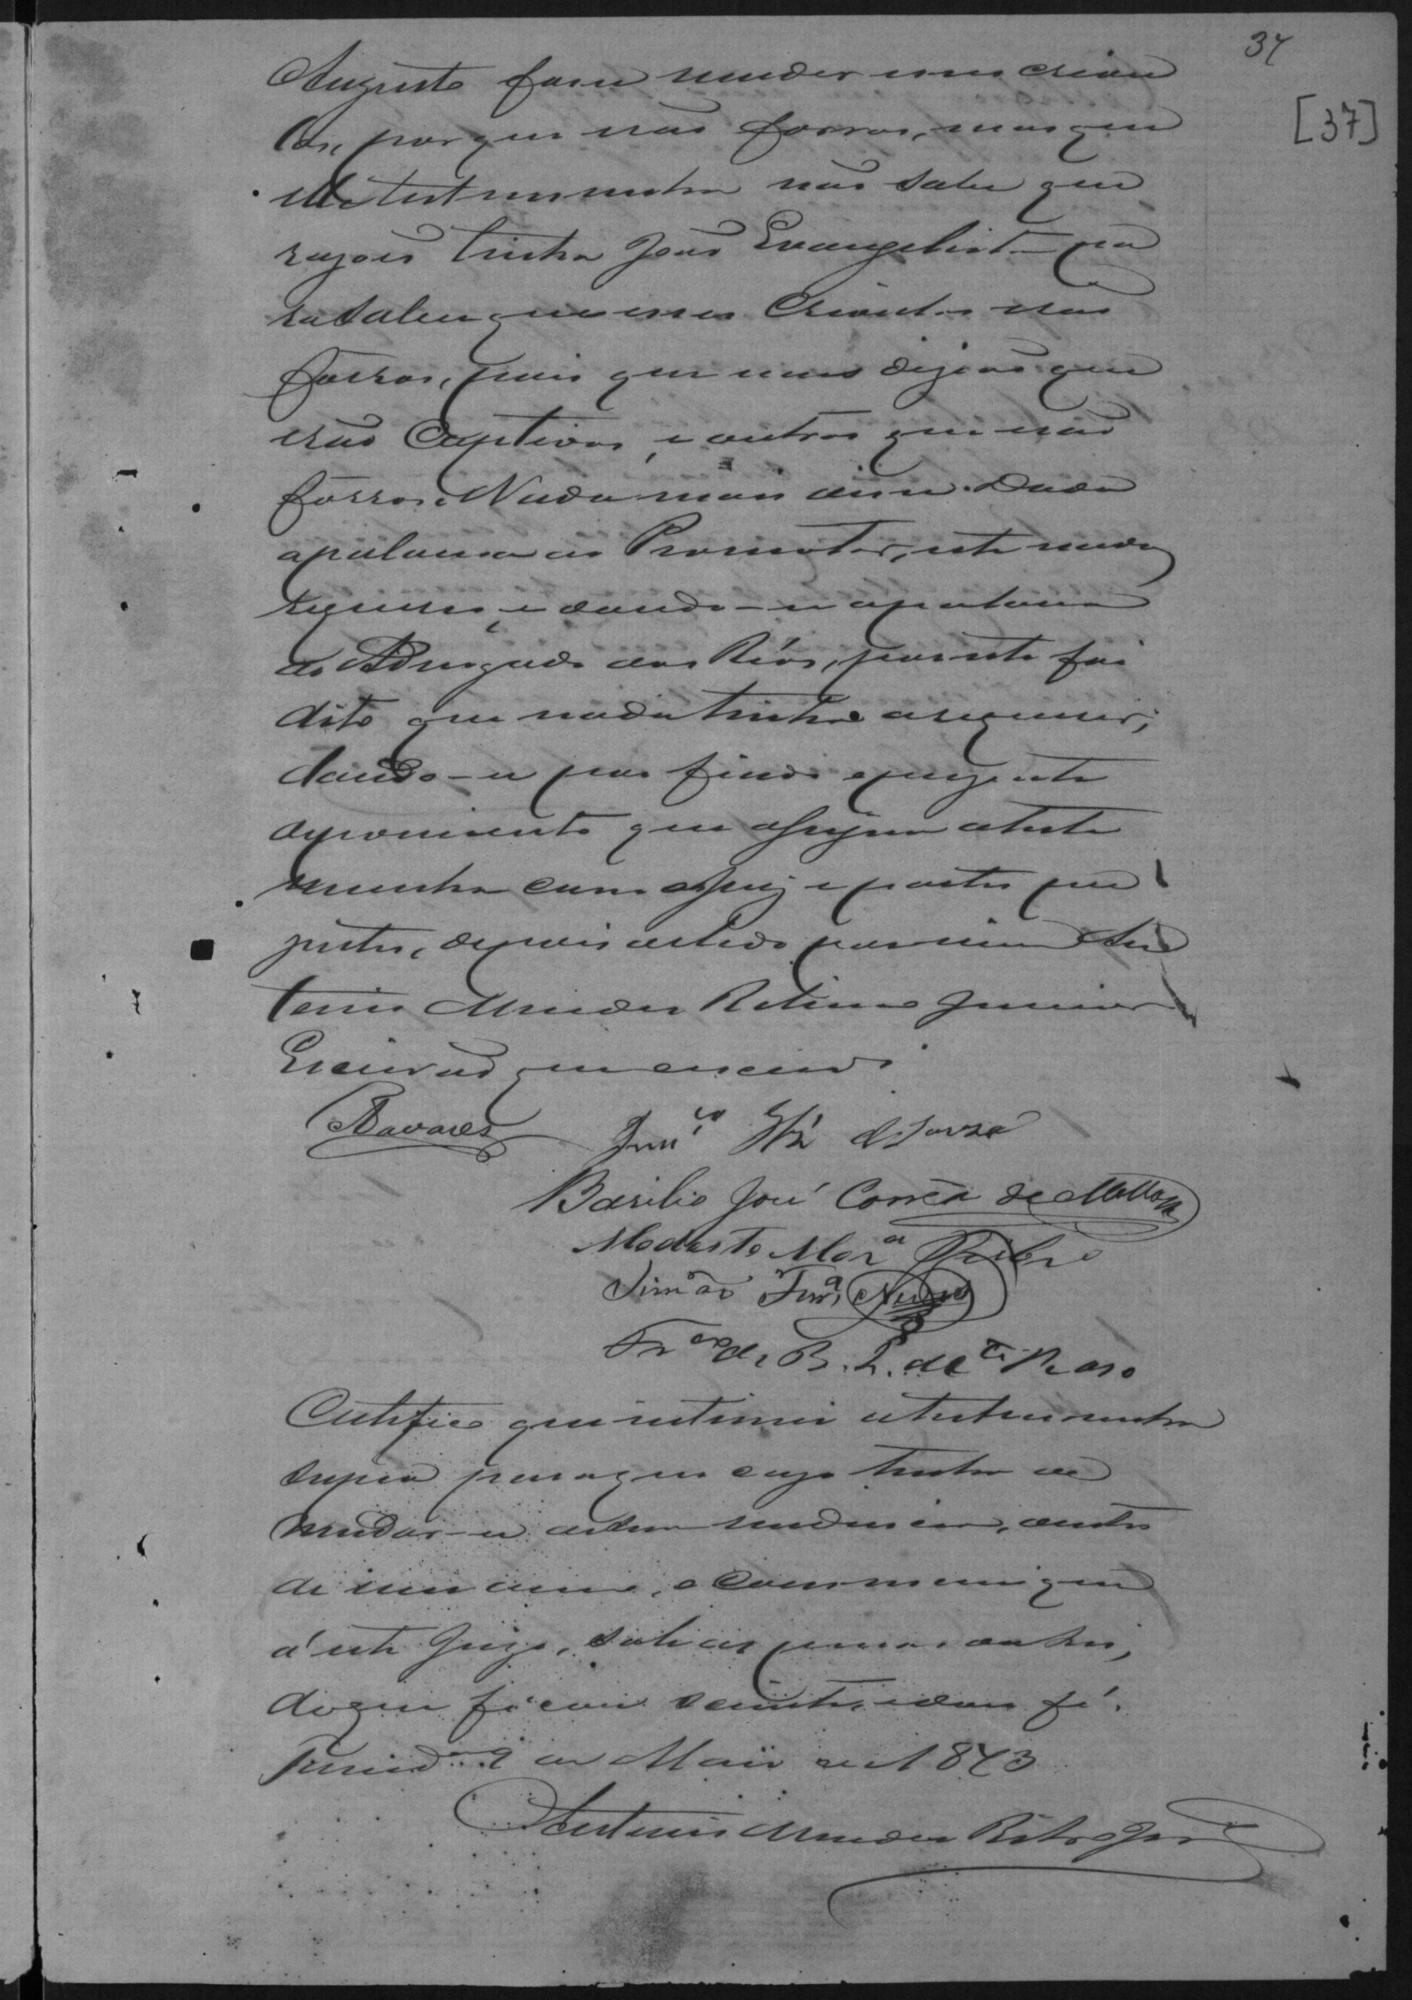 37
[37]
Augusto fosse vender esses criou
los, porque erão forros, mas que
elle testemunha não sabe que
razões tinha João Evangelista pa
ra saber que esses crioulos erão
forros, pois que uns dizião que
erão Captivos, e outros que erão
forros. Nada mais disse. Dada
a palavra ao Promotor, este nada
requereu, e dando-se a palavra
ao Advogado dos Réos, por este foi
dito que nada tinha a requerer;
dando-se por findo o presente
depoimento que assigna a teste
munha com o Juiz e partes pre
sentes, depois de lido por mim An
tonio Mendes Ribeiro Junior
Escrivão que escrevi
Tavares
de Souza
Basilio José Corrêa de Mello
Modesto Mor.a Ribro
Simão Nunes
Certifico que intimei a testemunha
supra para que caso tenha de
mudar-se de sua residencia, dentro
de um anno, o communique
a este Juizo, sob as penas da lei,
do que ficou sciente, e dou fé.
9 de Maio de 1873
Antonio Mendes Ribro Jor